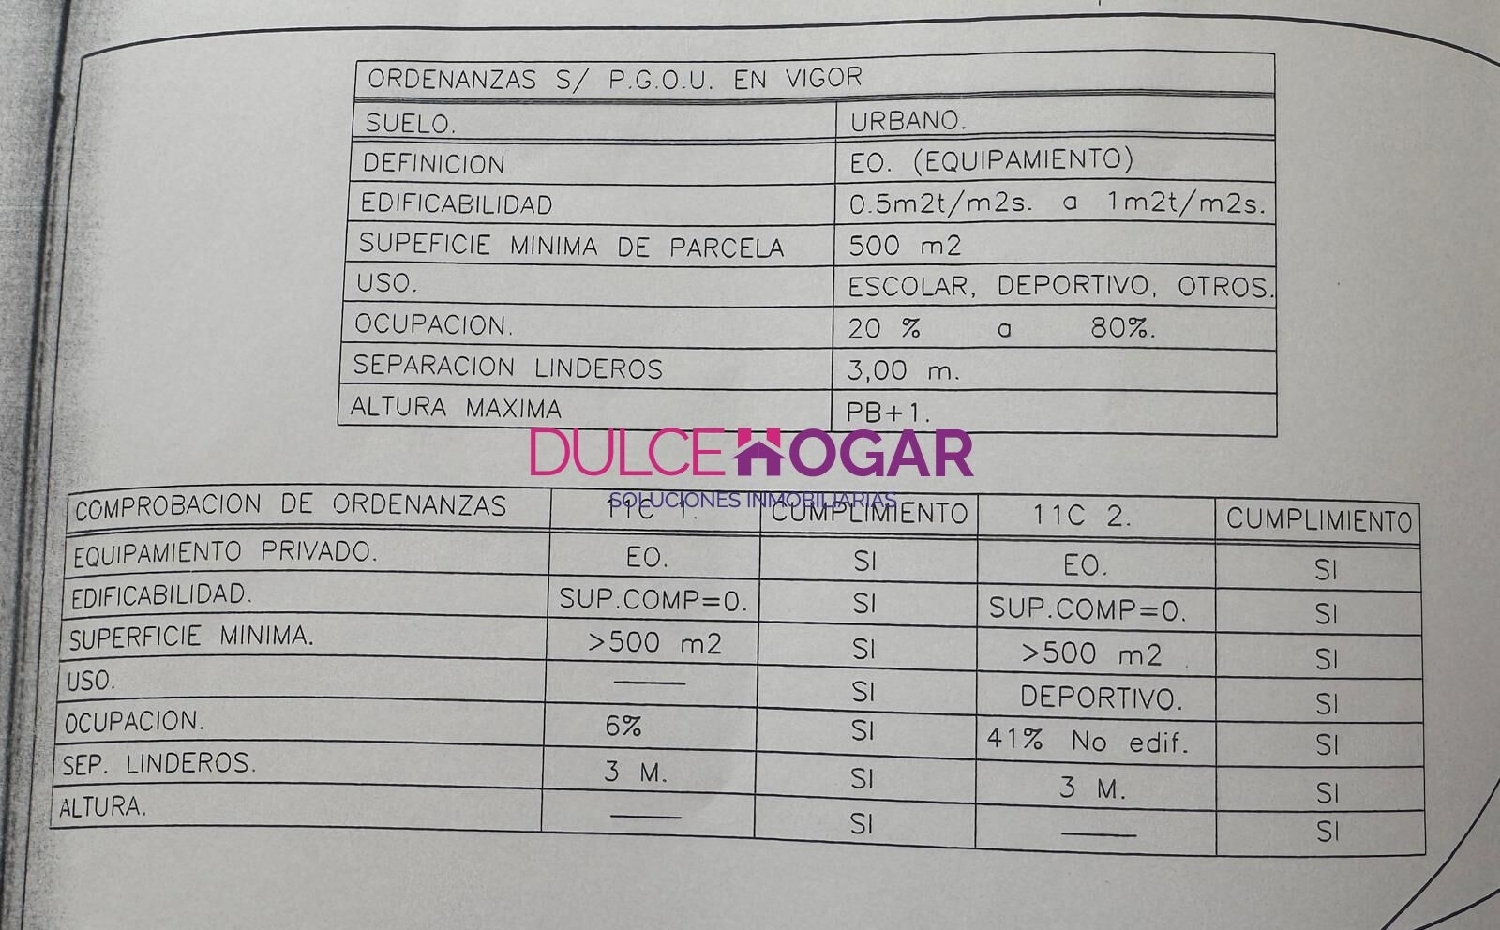 ORDENANZAS S/ P.G.O.U. EN VIGOR
SUELO. URBANO.
DEFINICION EO. (EQUIPAMIENTO)
EDIFICABILIDAD 0.5m2t/m2s. a 1m2t/m2s.
SUPEFICIE MINIMA DE PARCELA 500 m2
USO. ESCOLAR, DEPORTIVO, OTROS.
OCUPACION. 20 % a 80%.
SEPARACION LINDEROS 3,00 m.
ALTURA MAXIMA PB+1.
DULCE HOGAR
SOLUCIONES INMOBILIARIAS
COMPROBACION DE ORDENANZAS 11C 1. CUMPLIMIENTO 11C 2. CUMPLIMIENTO
EQUIPAMIENTO PRIVADO. EO. SI EO. SI
EDIFICABILIDAD. SUP.COMP=0. SI SUP.COMP=0. SI
SUPERFICIE MINIMA. >500 m2 SI >500 m2 SI
USO. — SI DEPORTIVO. SI
OCUPACION. 6% SI 41% No edif. SI
SEP. LINDEROS. 3 M. SI 3 M. SI
ALTURA. — SI — SI